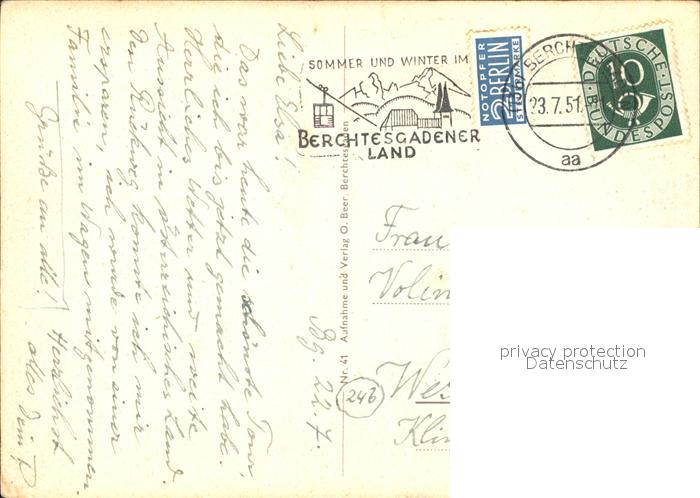 SOMMER UND WINTER IM
BERCHTESGADENER
LAND
NOTOPFER
2 BERLIN
STEUERMARKE
BERCH
23.7.51
aa
DEUTSCHE
10
BUNDESPOST
Liebe Elsa!
Das war heute die schönste Tour,
die ich bis jetzt gemacht habe.
Herrliches Wetter und weite
Aussicht in österreichisches Land.
Den Rückweg konnte ich mir
ersparen, ich wurde von einer
Familie im Wagen mitgenommen.
Grüße an alle! Herzlichst
alles Dein
Bg. 22.7.
Nr. 41 Aufnahme und Verlag O. Beer, Berchtesgaden
Frau
(24b)
privacy protection
Datenschutz